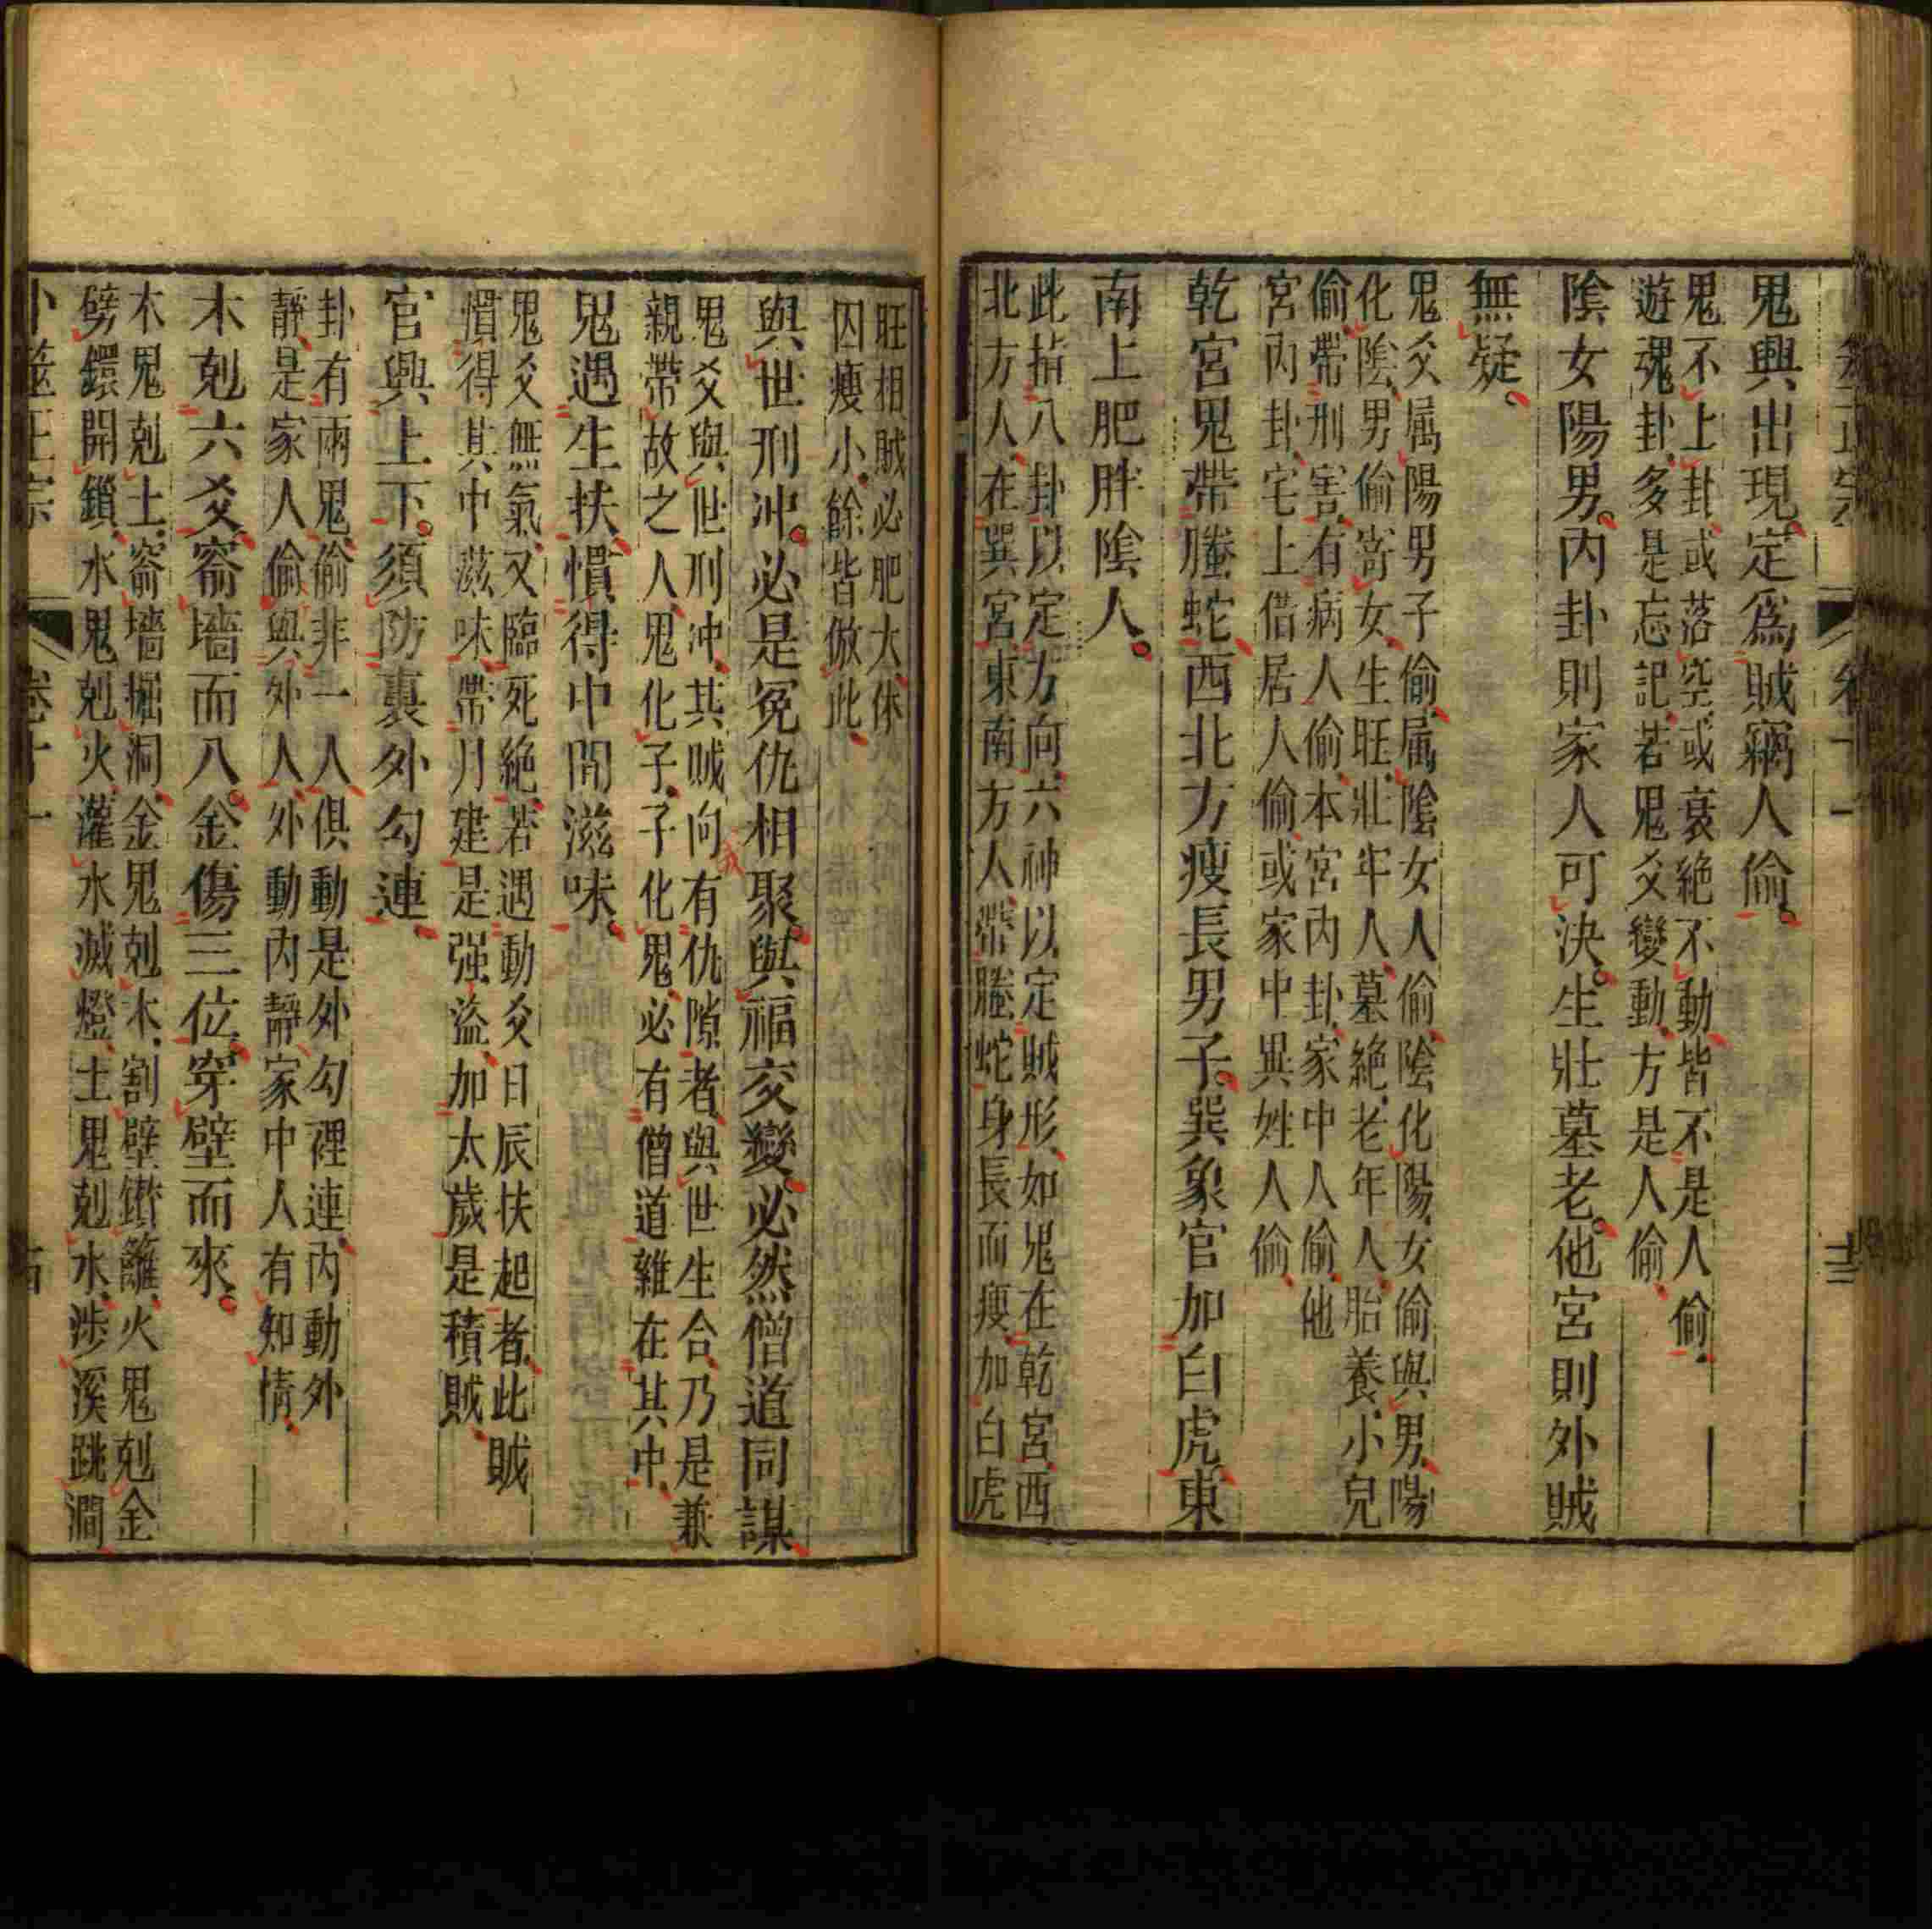 卜筮正宗 卷十一 十三
鬼興出現。定爲賊竊人偷。
鬼不上卦、或落空、或衰絶不動、皆不是人偷、
遊魂卦、多是忘記、若鬼爻變動、方是人偷、
陰女陽男。內卦則家人可決。生壯墓老。他宮則外賊
無疑。
鬼爻属陽男子偷、属陰女人偷、陰化陽、女偷與男、陽
化陰、男偷寄女、生旺、壯年人、墓絶、老年人、胎養、小兒
偷、帶刑害、有病人偷、本宮內卦、家中人偷、他
宮內卦、宅上借居人偷、或家中異姓人偷、
乾宮鬼帶螣蛇、西北方瘦長男子。巽象官加白虎、東
南上肥胖陰人。
此指八卦以定方向、六神以定賊形、如鬼在乾宮、西
北方人、在巽宮、東南方人、帶螣蛇、身長而瘦、加白虎
旺相、賊必肥大、休
囚瘦小、餘皆倣此、
與世刑冲。必是冤仇相聚。與福交變。必然僧道同謀
鬼爻與世刑冲、其賊向有仇隙者、與世生合、乃是兼
親帶故之人、鬼化子、子化鬼、必有僧道雜在其中、
鬼遇生扶、慣得中間滋味。
鬼爻無氣、又臨死絶、若遇動爻日辰扶起者、此賊
慣得其中滋味、帶月建是强盗、加太歲是積賊、
官興上下。須防裏外勾連、
卦有兩鬼、偷非一人、俱動是外勾裡連、內動外
靜、是家人偷與外人、外動內靜、家中人有知情、
木剋六爻、窬墻而入。金傷三位、穿壁而來。
木鬼剋土、窬墻掘洞、金鬼剋木、割壁鑽籬、火鬼剋金
劈鐶開鎖、水鬼剋火、灌水滅燈、土鬼剋水、涉溪跳澗、
卜筮正宗 卷十一